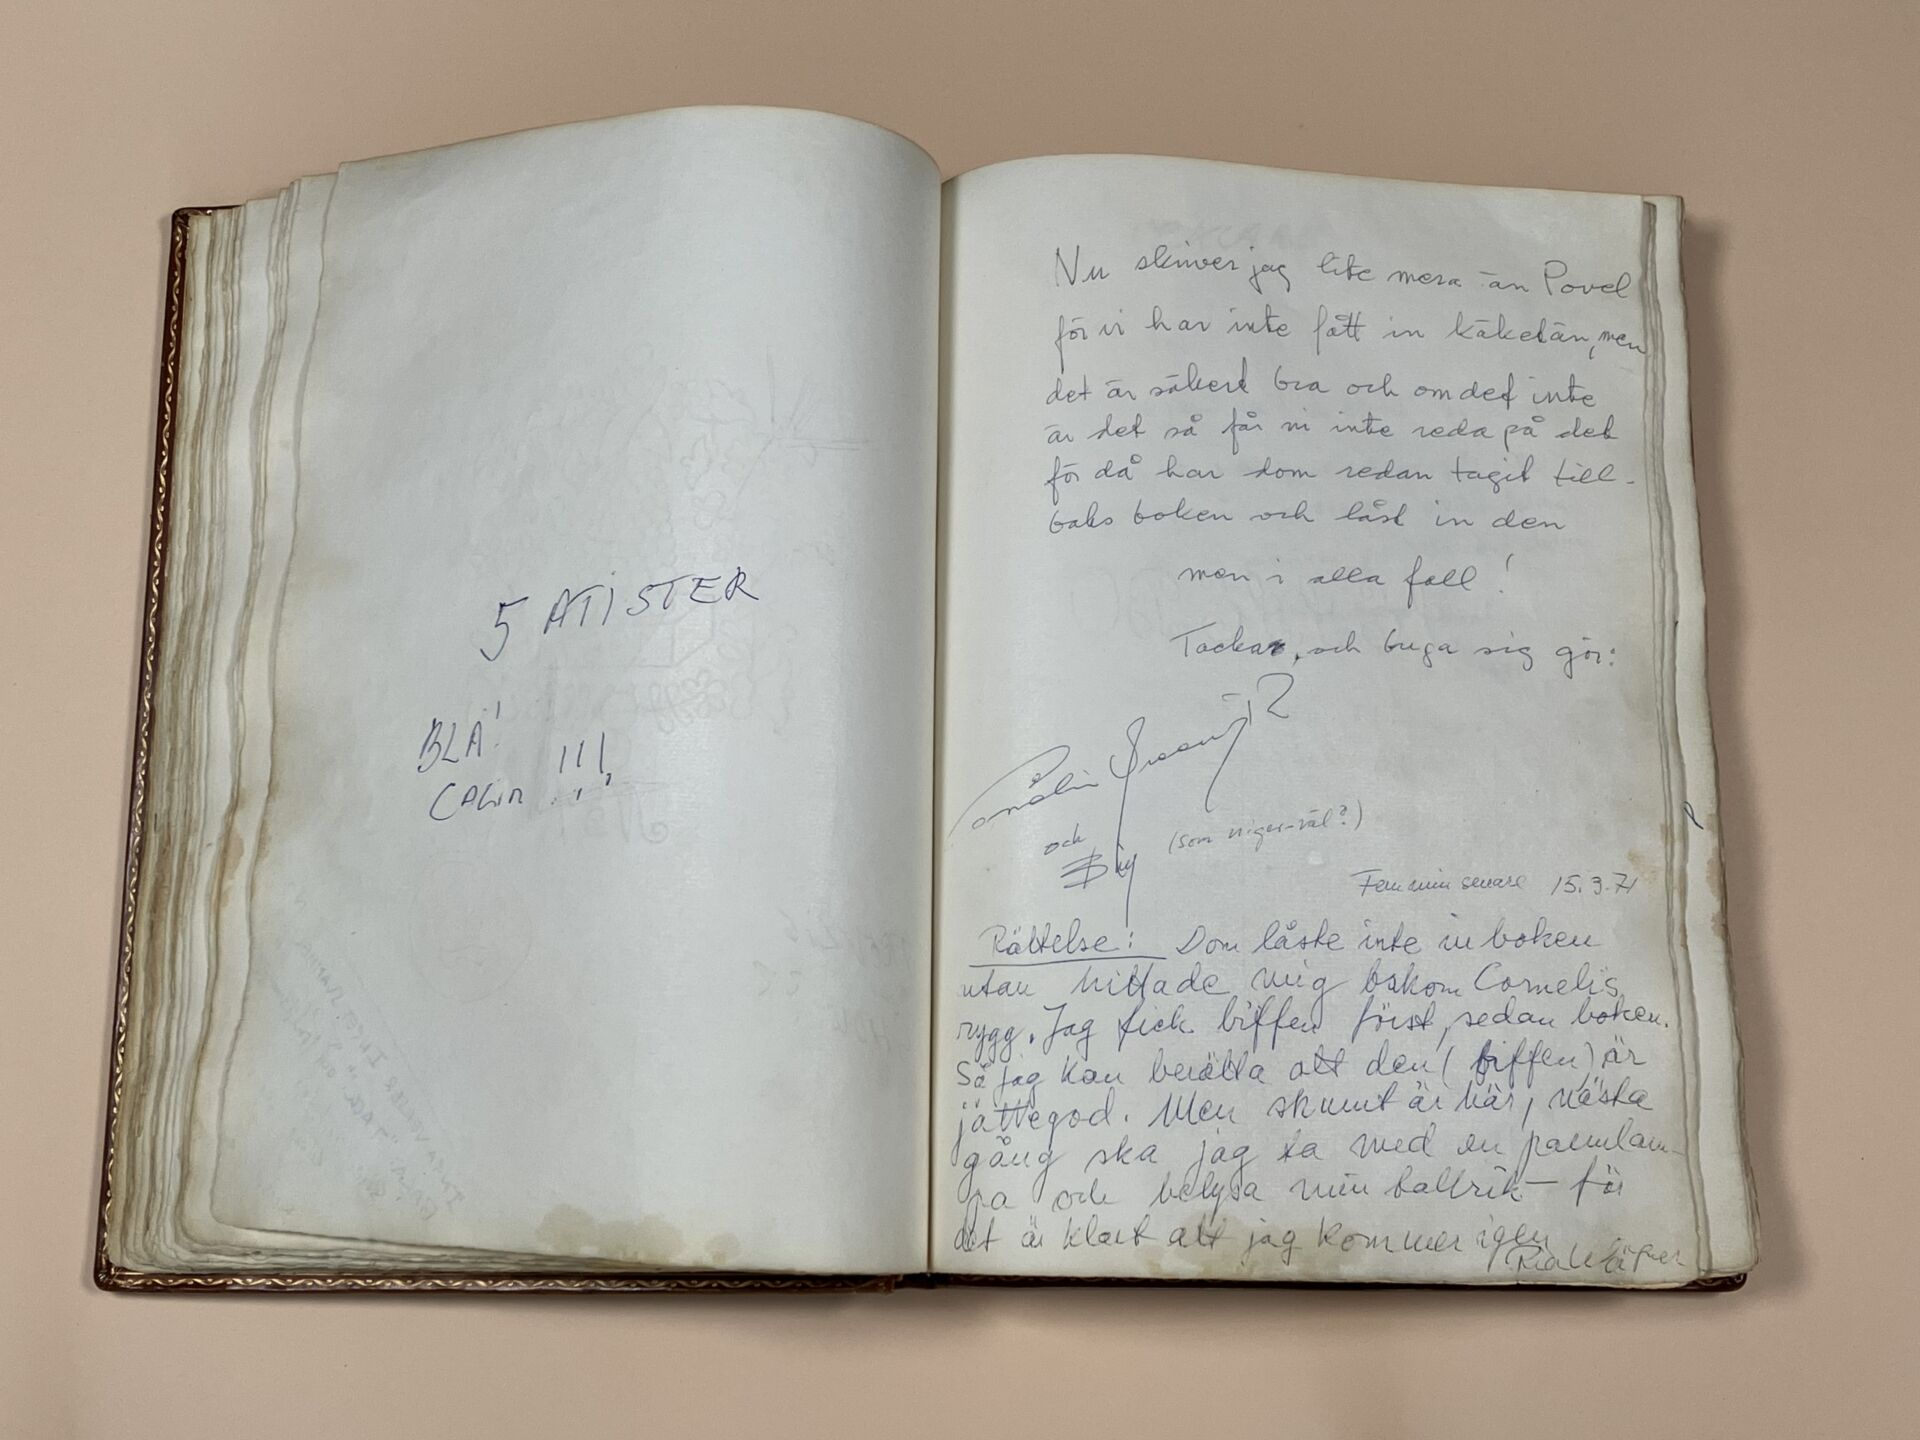 5 ATISTER
BLÅ!
!!!
Nu skriver jag lite mera än Povel
för vi har inte fått in käket än, men
det är säkert bra och om det inte
är det så får ni inte reda på det
för då har dom redan tagit till-
baks boken och låst in den
men i alla fall!
Tackar, och buga sig gör:
och
(som niger-väl?)
Fem min senare 15.3.71
Rättelse: Dom låste inte in boken
utan hittade mig bakom Cornelis
rygg. Jag fick biffen först, sedan boken.
Så jag kan berätta att den (biffen) är
jättegod. Men skumt är här, nästa
gång ska jag ta med en pannlam-
pa och belysa min tallrik — för
det är klart att jag kommer igen